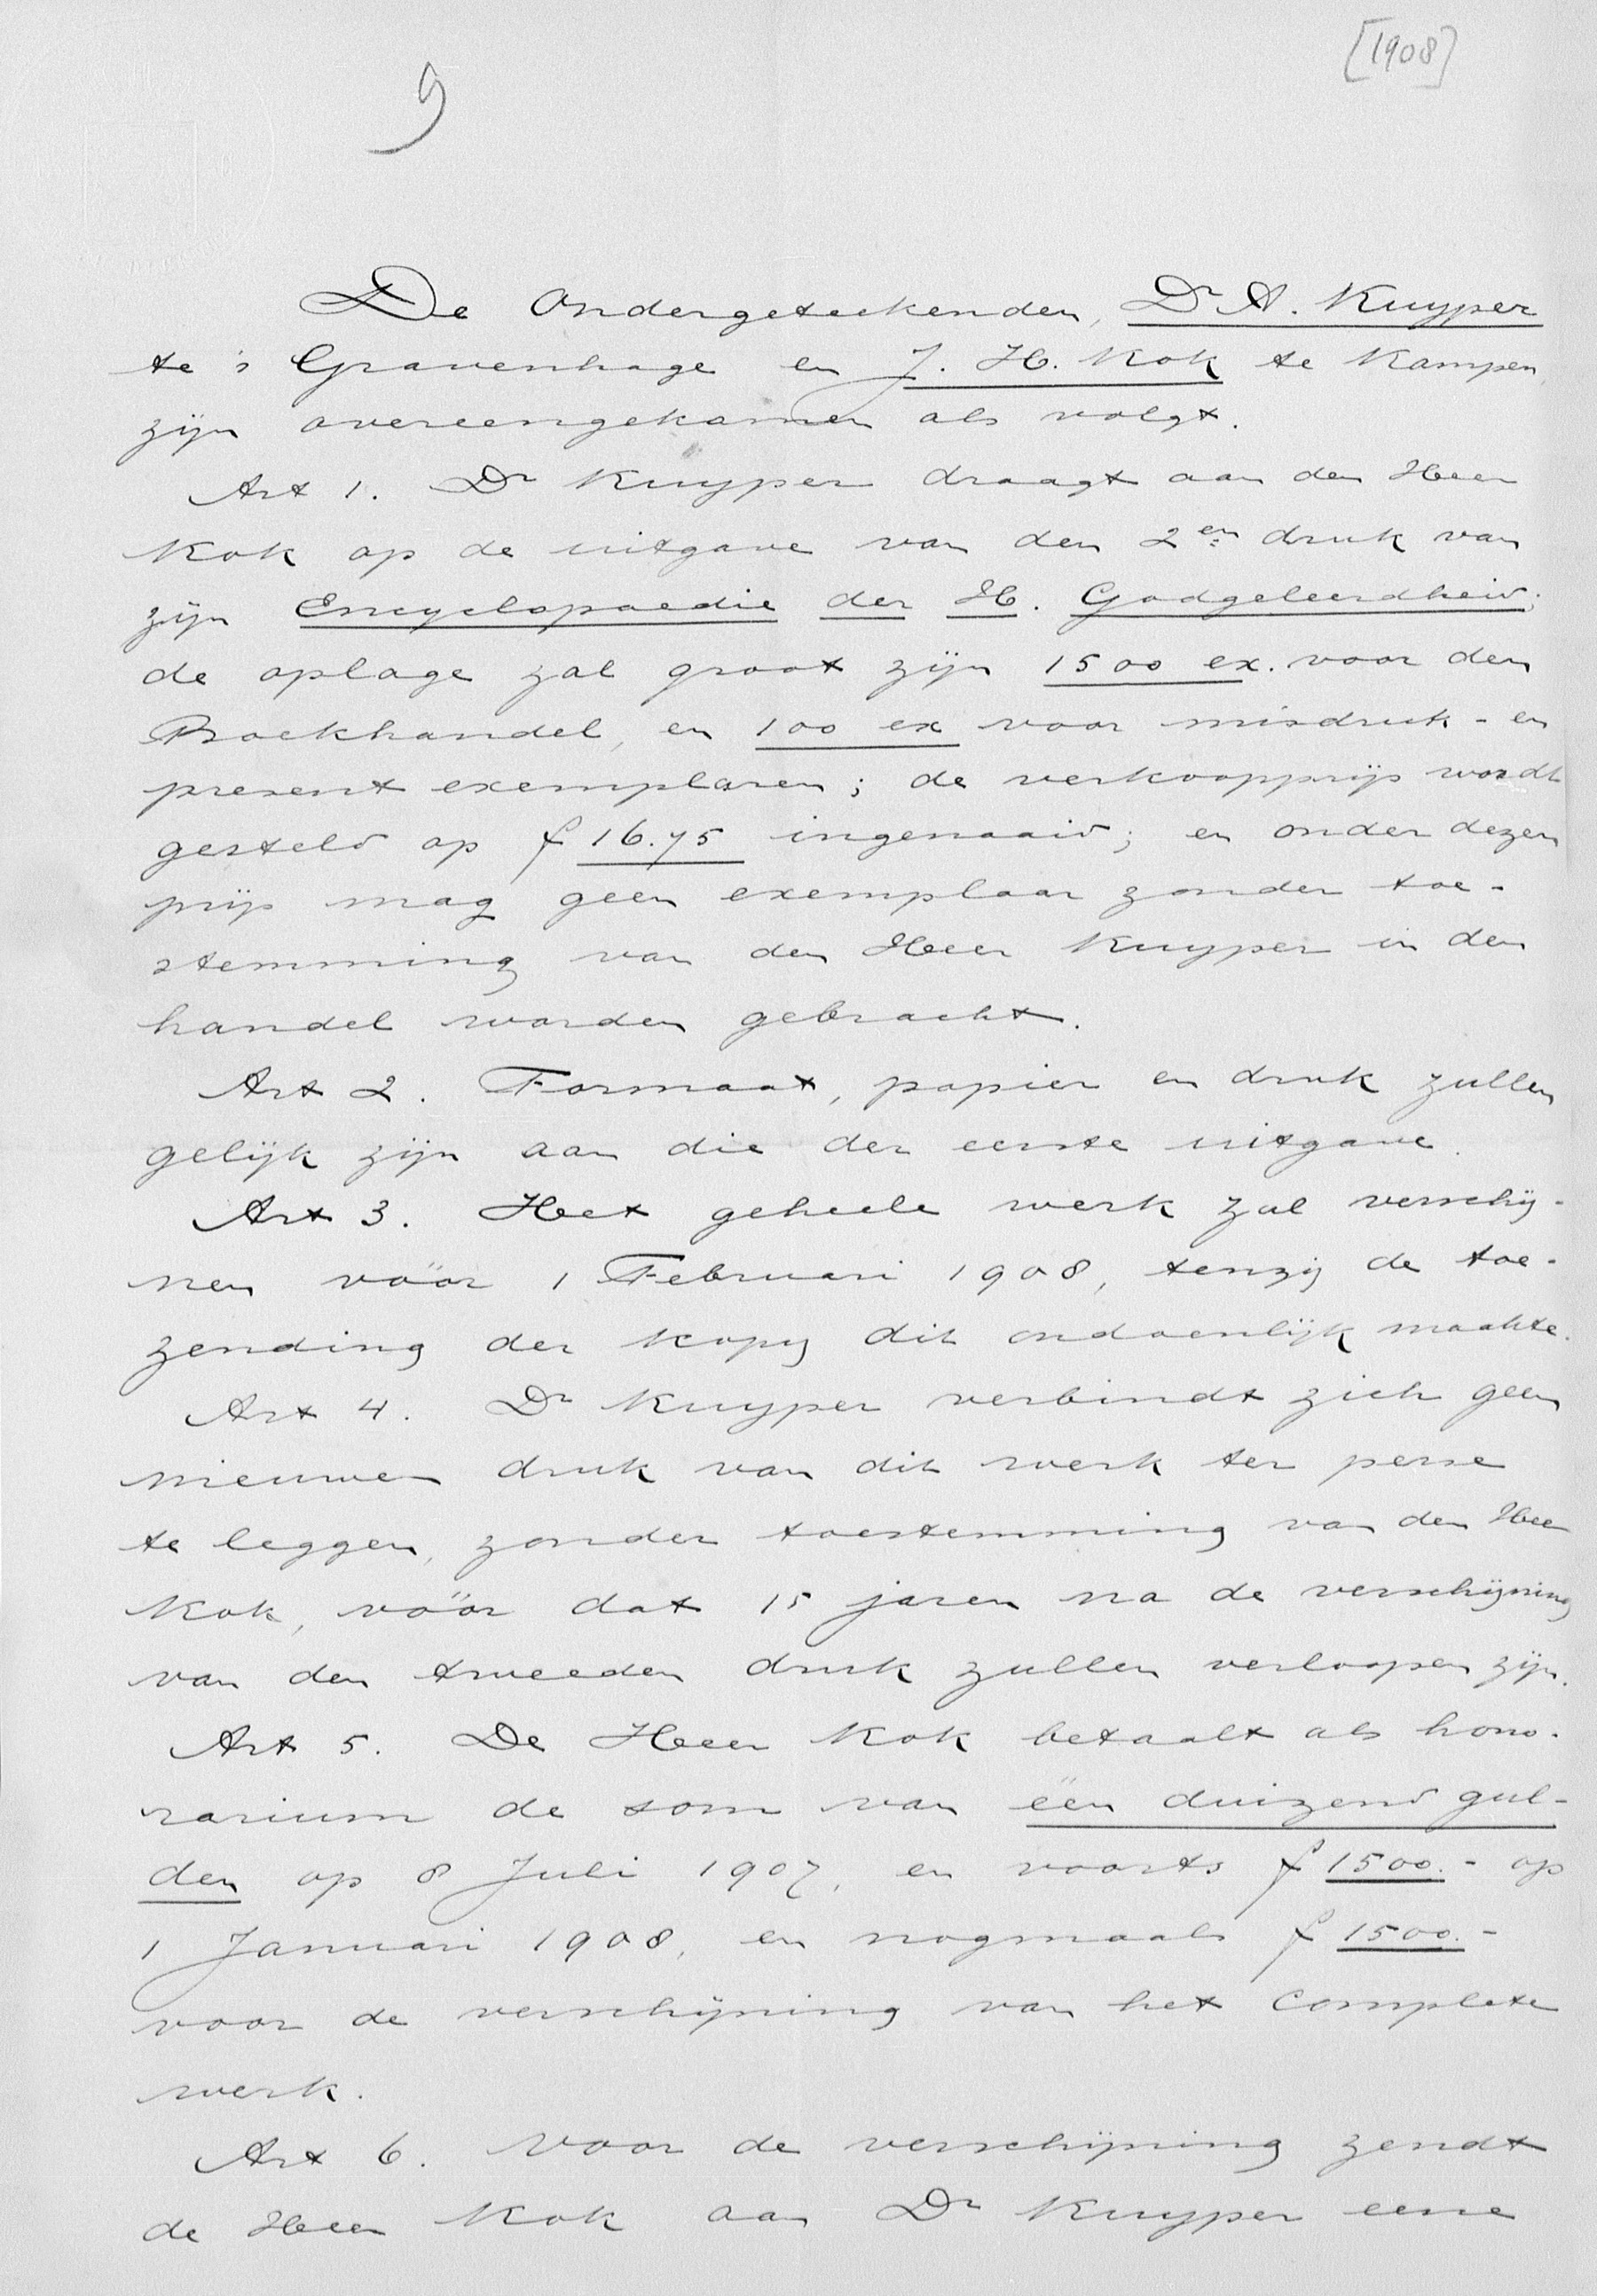 [1908]
9
De Ondergeteekenden, Dr A. Kuyper
te 's Gravenhage en J. H. Kok te Kampen
zijn overeengekomen als volgt.
Art 1. Dr Kuyper draagt aan den Heer
Kok op de uitgave van den 2en druk van
zijn Encyclopaedie der H. Godgeleerdheid;
de oplage zal groot zijn 1500 ex. voor den
Boekhandel, en 100 ex voor misdruk- en
present exemplaren; de verkoopprijs wordt
gesteld op f 16.75 ingenaaid; en onder dezen
prijs mag geen exemplaar zonder toe-
stemming van den Heer Kuyper in den
handel worden gebracht.
Art 2. Formaat, papier en druk zullen
gelijk zijn aan die der eerste uitgave.
Art 3. Het geheele werk zal verschij-
nen vóór 1 Februari 1908, tenzij de toe-
zending der kopij dit ondoenlijk maakte.
Art 4. Dr Kuyper verbindt zich geen
nieuwen druk van dit werk ter perse
te leggen, zonder toestemming van den Heer
Kok, vóór dat 15 jaren na de verschijning
van den tweeden druk zullen verloopen zijn.
Art 5. De Heer Kok betaalt als hono-
rarium de som van één duizend gul-
den op 8 Juli 1907, en voorts f 1500.- op
1 Januari 1908, en nogmaals f 1500.-
voor de verschijning van het complete
werk.
Art 6. Voor de verschijning zendt
de Heer Kok aan Dr Kuyper eene